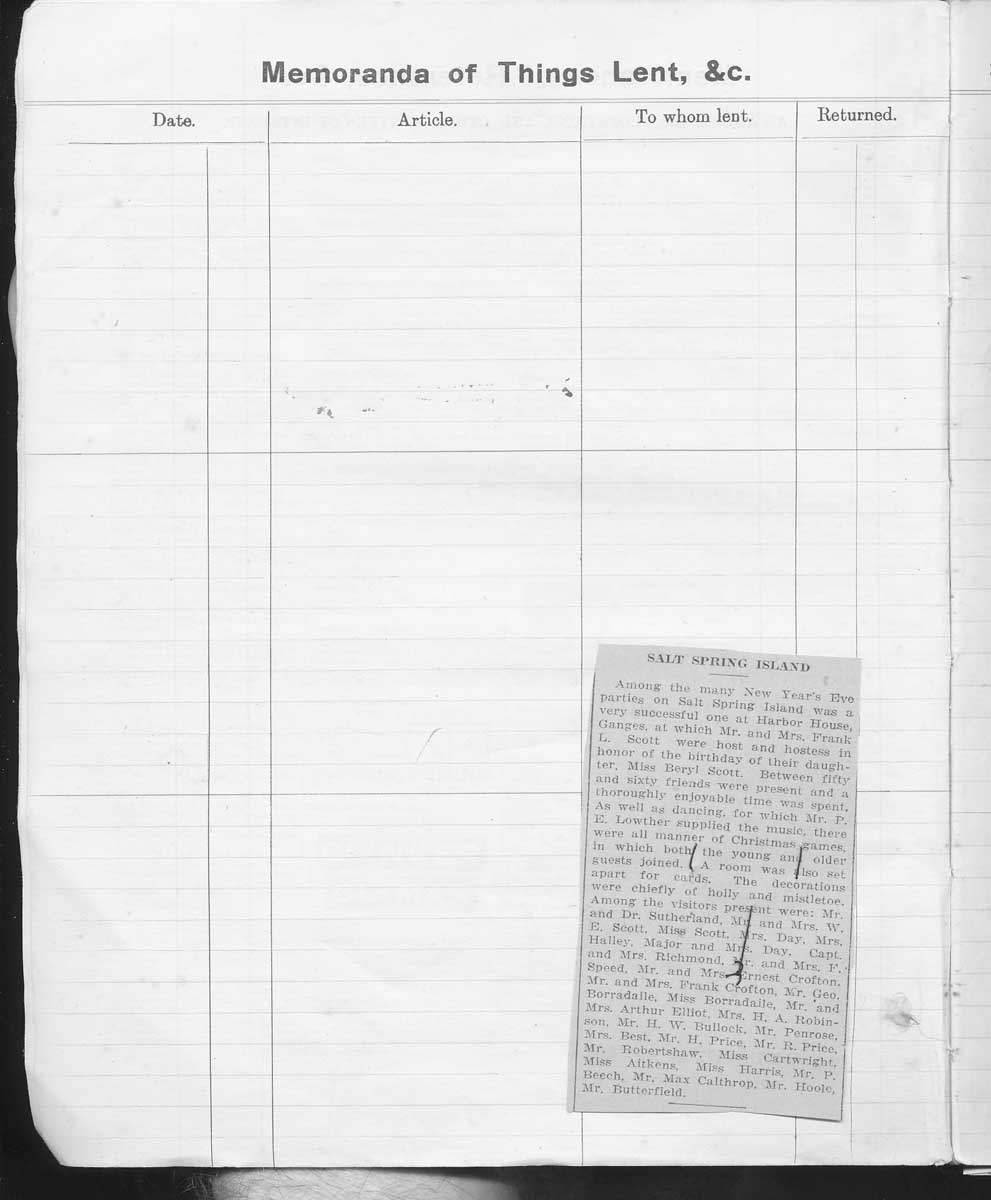 Memoranda of Things Lent, &c.
Date. Article. To whom lent. Returned.
SALT SPRING ISLAND
Among the many New Year's Eve
parties on Salt Spring Island was a
very successful one at Harbor House,
Ganges, at which Mr. and Mrs. Frank
L. Scott were host and hostess in
honor of the birthday of their daugh-
ter, Miss Beryl Scott. Between fifty
and sixty friends were present and a
thoroughly enjoyable time was spent.
As well as dancing, for which Mr. P.
E. Lowther supplied the music, there
were all manner of Christmas games,
in which both the young and older
guests joined. A room was also set
apart for cards. The decorations
were chiefly of holly and mistletoe.
Among the visitors present were: Mr.
and Dr. Sutherland, Mr. and Mrs. W.
E. Scott, Miss Scott, Mrs. Day, Mrs.
Halley, Major and Mrs. Day, Capt.
and Mrs. Richmond, Mr. and Mrs. F.
Speed, Mr. and Mrs. Ernest Crofton,
Mr. and Mrs. Frank Crofton, Mr. Geo.
Borradaile, Miss Borradaile, Mr. and
Mrs. Arthur Elliot, Mrs. H. A. Robin-
son, Mr. H. W. Bullock, Mr. Penrose,
Mrs. Best, Mr. H. Price, Mr. R. Price,
Mr. Robertshaw, Miss Cartwright,
Miss Aitkens, Miss Harris, Mr. P.
Beech, Mr. Max Calthrop, Mr. Hoole,
Mr. Butterfield.